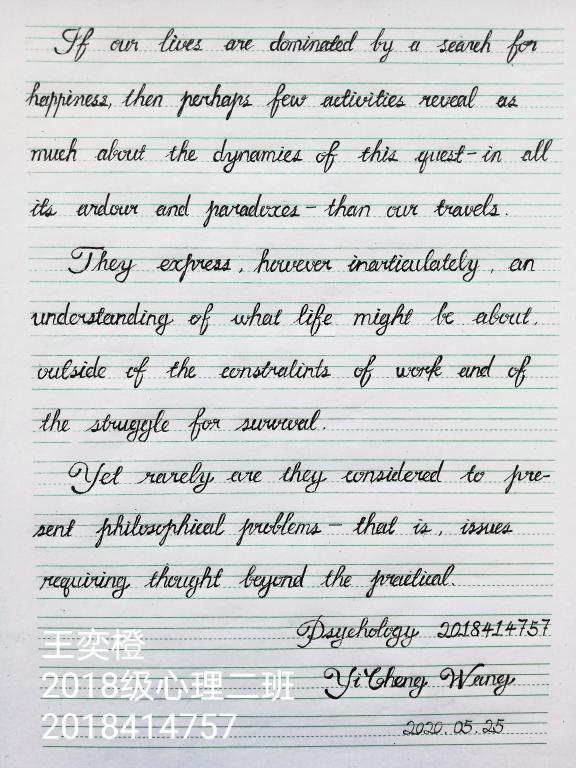 If our lives are dominated by a search for
happiness, then perhaps few activities reveal as
much about the dynamics of this quest - in all
its ardour and paradoxes - than our travels.
They express, however inarticulately, an
understanding of what life might be about.
outside of the constralints of work and of
the struggle for survival.
Yet rarely are they considered to pre-
sent philosophical problems - that is, issues
requiring thought beyond the practical.
Psychology 2018414757
YiCheng Wang
2020.05.25
王奕橙
2018级心理二班
2018414757